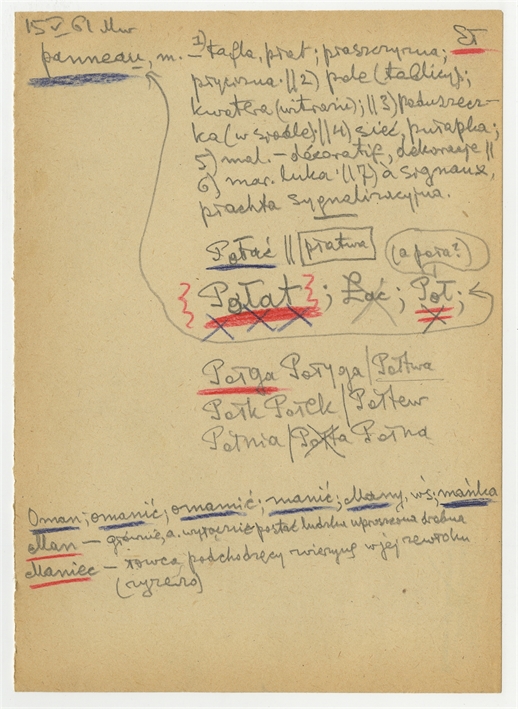 15 V 61 Mw
Eł
panneau, m. – 1) tafla, płat; płaszczyzna;
płycizna || 2) pole (tablicy);
kwatera (witraża); || 3) poduszecz-
ka (w siodle) || 4) sieć, pułapka;
5) mal. – décoratif, dekoracje ||
6) mar. luka || 7) à signaux,
płachta sygnalizacyjna.
Połać || płatwa (a poła?)
{Połat}; Łać; Poł;
Połga Połyga / Połtwa
Połk Połek / Połtew
Połnia / Połta Połna
Oman; omanić; omamić; manić; Many, wś; mańka
Man – głównie, a. wyłącznie postać ludzka uproszczona drobna
Maniec – łowca podchodzący zwierzynę w jej zewłoku